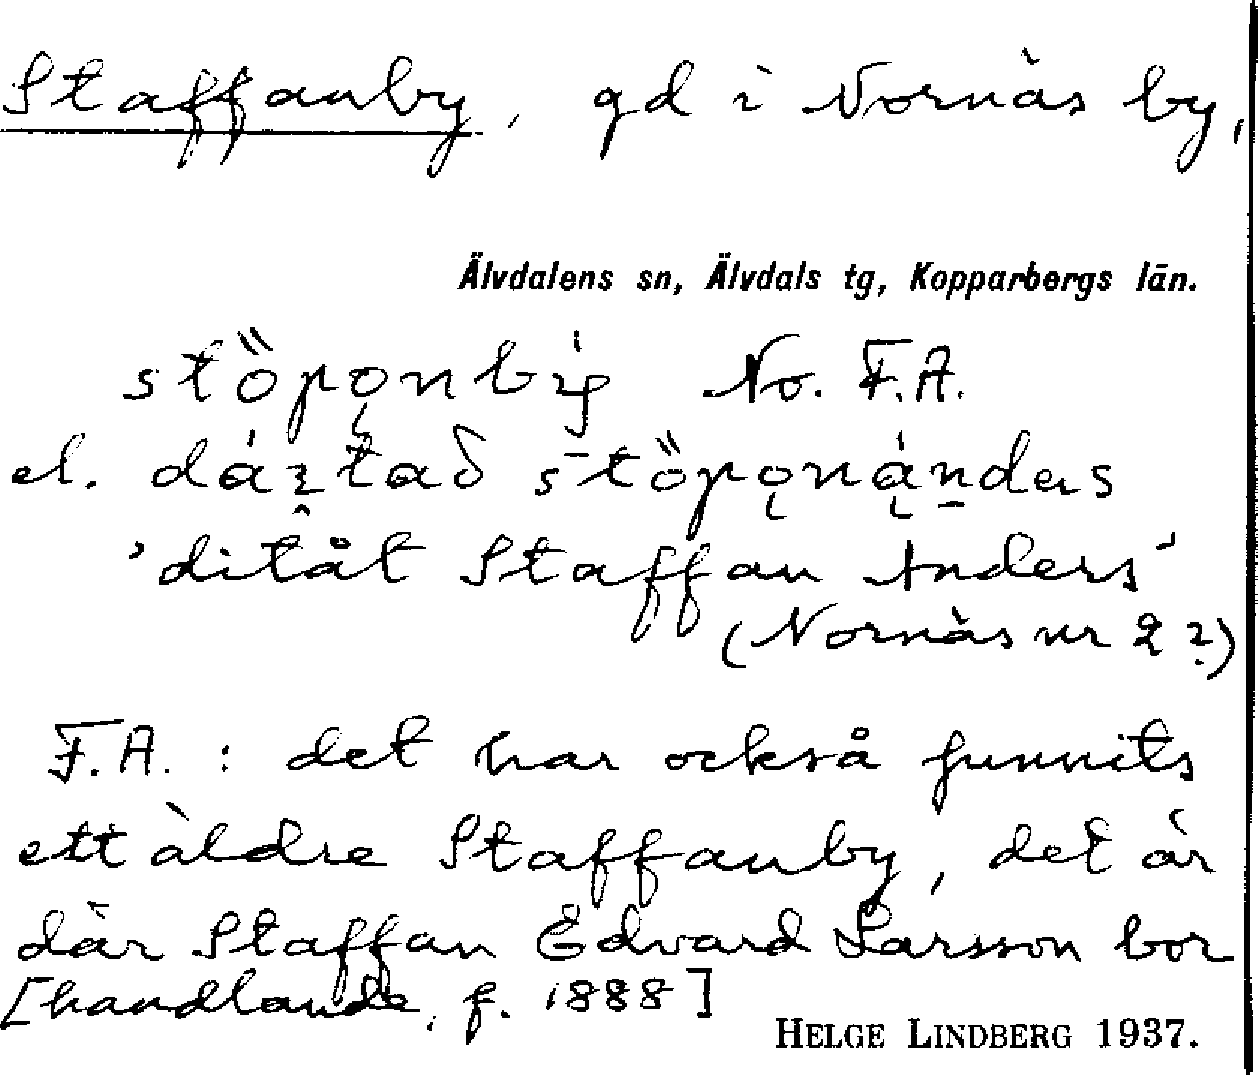 Staffanby, gd i Nornäs by,
Älvdalens sn, Älvdals tg, Kopparbergs län.
No. F.A.
el.
'ditåt Staffan Anders'
(Nornäs nr 2?)
F.A. : det har också funnits
ett äldre Staffanby, det är
där Staffan Edvard Larsson bor
[handlande, f. 1888]
HELGE LINDBERG 1937.